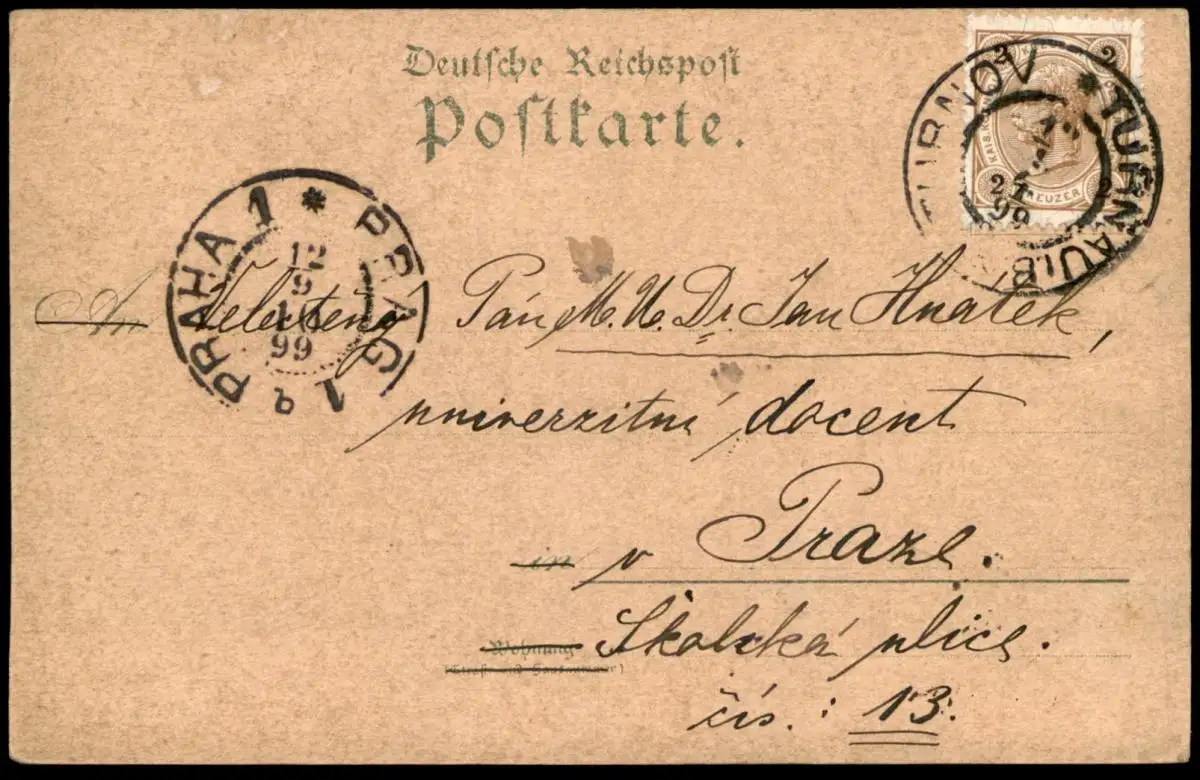 Deutsche Reichspost
Postkarte.
2 2
KREUZER
2 2
TURNOV * TURNAU
99
PRAHA 1 * PRAG 1
12
9
99
An Velectěný Pán M. U. Dr. Jan Hnátek,
univerzitní docent
in v Praze.
Wohnung Školská ulice.
(Straße und Hausnummer)
čís.: 13.